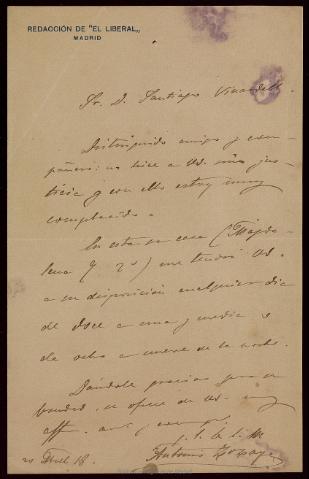 REDACCIÓN DE "EL LIBERAL„
MADRID
Sr. D. Santiago Vinardell.
Distinguido amigo y com-
pañero: no hice a Vd. más jus-
ticia y con ello estoy muy
complacido.
En esta su casa (Magda-
lena 2º) me tendrá Vd.
a su disposición cualquier día
de doce a una y media o
de ocho a nueve de la noche.
Dándole gracias por su
bondad, se ofrece de Vd. muy
aff. am. y comp.
q. l. b. l. m.
Antonio Zozaya
20 18.